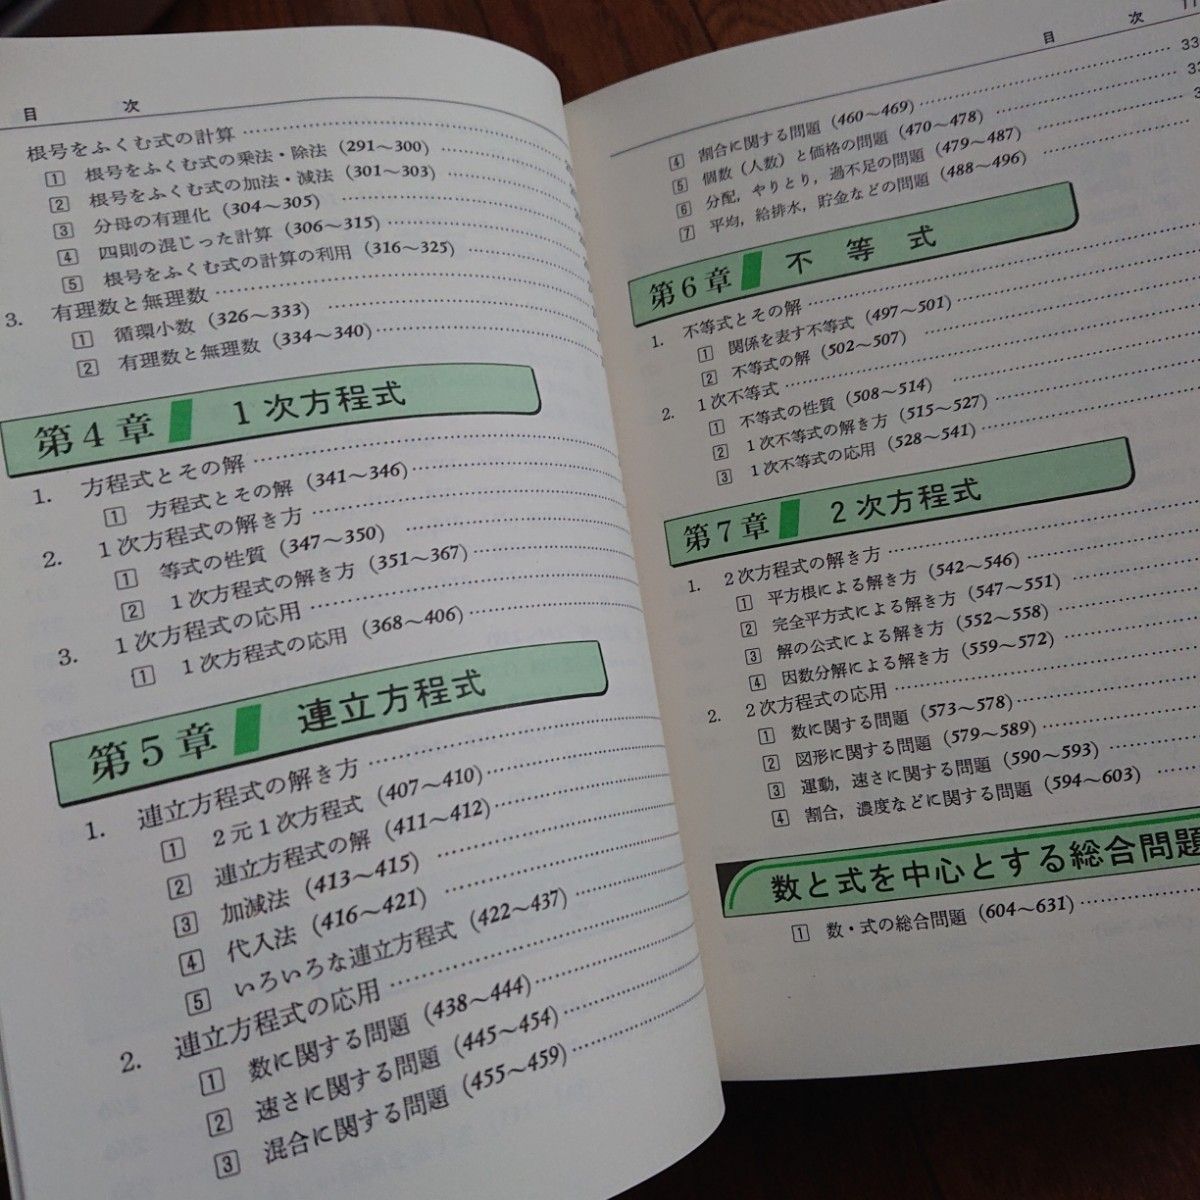 目 次
根号をふくむ式の計算
1 根号をふくむ式の乗法・除法 (291〜300)
2 根号をふくむ式の加法・減法 (301〜303)
3 分母の有理化 (304〜305)
4 四則の混じった計算 (306〜315)
5 根号をふくむ式の計算の利用 (316〜325)
3. 有理数と無理数
1 循環小数 (326〜333)
2 有理数と無理数 (334〜340)
第4章 1次方程式
1. 方程式とその解
1 方程式とその解 (341〜346)
2. 1次方程式の解き方
1 等式の性質 (347〜350)
2 1次方程式の解き方 (351〜367)
3. 1次方程式の応用
1 1次方程式の応用 (368〜406)
第5章 連立方程式
1. 連立方程式の解き方
1 2元1次方程式 (407〜410)
2 連立方程式の解 (411〜412)
3 加減法 (413〜415)
4 代入法 (416〜421)
5 いろいろな連立方程式 (422〜437)
2. 連立方程式の応用
1 数に関する問題 (438〜444)
2 速さに関する問題 (445〜454)
3 混合に関する問題 (455〜459)
目 次 11
4 割合に関する問題 (460〜469)
5 個数（人数）と価格の問題 (470〜478)
6 分配，やりとり，過不足の問題 (479〜487)
7 平均，給排水，貯金などの問題 (488〜496)
第6章 不等式
1. 不等式とその解
1 関係を表す不等式 (497〜501)
2 不等式の解 (502〜507)
2. 1次不等式
1 不等式の性質 (508〜514)
2 1次不等式の解き方 (515〜527)
3 1次不等式の応用 (528〜541)
第7章 2次方程式
1. 2次方程式の解き方
1 平方根による解き方 (542〜546)
2 完全平方式による解き方 (547〜551)
3 解の公式による解き方 (552〜558)
4 因数分解による解き方 (559〜572)
2. 2次方程式の応用
1 数に関する問題 (573〜578)
2 図形に関する問題 (579〜589)
3 運動，速さに関する問題 (590〜593)
4 割合，濃度などに関する問題 (594〜603)
数と式を中心とする総合問題
1 数・式の総合問題 (604〜631)